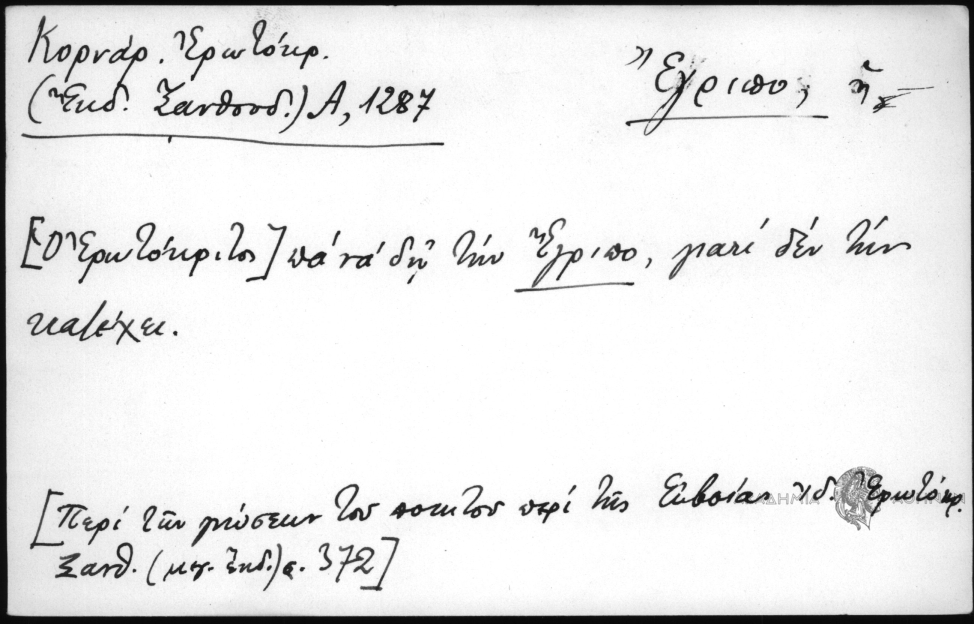 Κορνάρ. Ἐρωτόκρ.
(Ἔκδ. Ξανθουδ.) Α, 1287
Ἔγριπο, ἡ
[Ὁ Ἐρωτόκριτος] πά νά δῇ τήν Ἔγριπο, γιατί δέν τήν
κατέχει.
[Περί τῶν γνώσεων τοῦ ποιητοῦ περί τῆς Εὐβοίας ἰδ. Ἐρωτόκρ.
Ξανθ. (μεγ. ἔκδ.) σ. 372]